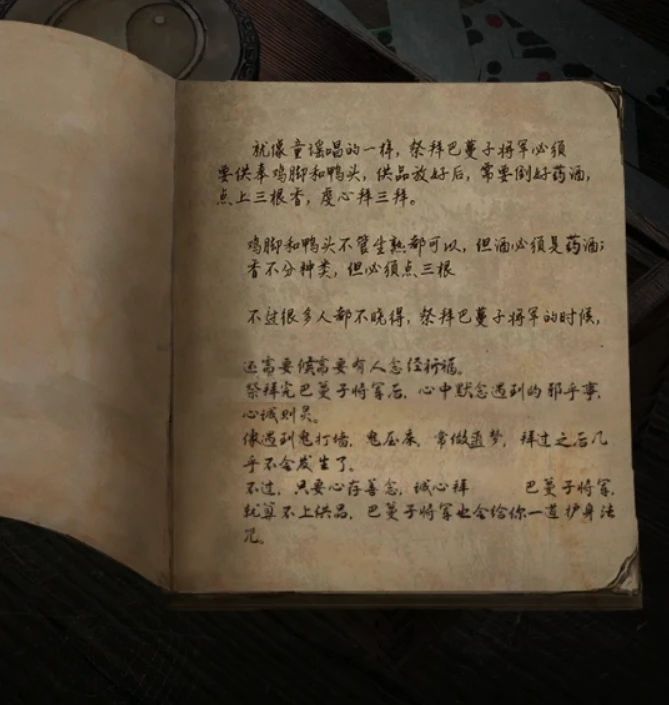 就像童谣唱的一样，祭拜巴蔓子将军必须
要供奉鸡脚和鸭头，供品放好后，常要倒好药酒，
点上三根香，虔心拜三拜。
鸡脚和鸭头不管生熟都可以，但酒必须是药酒；
香不分种类，但必须点三根
不过很多人都不晓得，祭拜巴蔓子将军的时候，
还需要候需要有人念经祈福。
祭拜完巴蔓子将军后，心中默念遇到的邪乎事，
心诚则灵。
像遇到鬼打墙，鬼压床，常做噩梦，拜过之后几
乎不会发生了。
不过，只要心存善念，诚心拜 巴蔓子将军，
就算不上供品，巴蔓子将军也会给你一道护身法
咒。